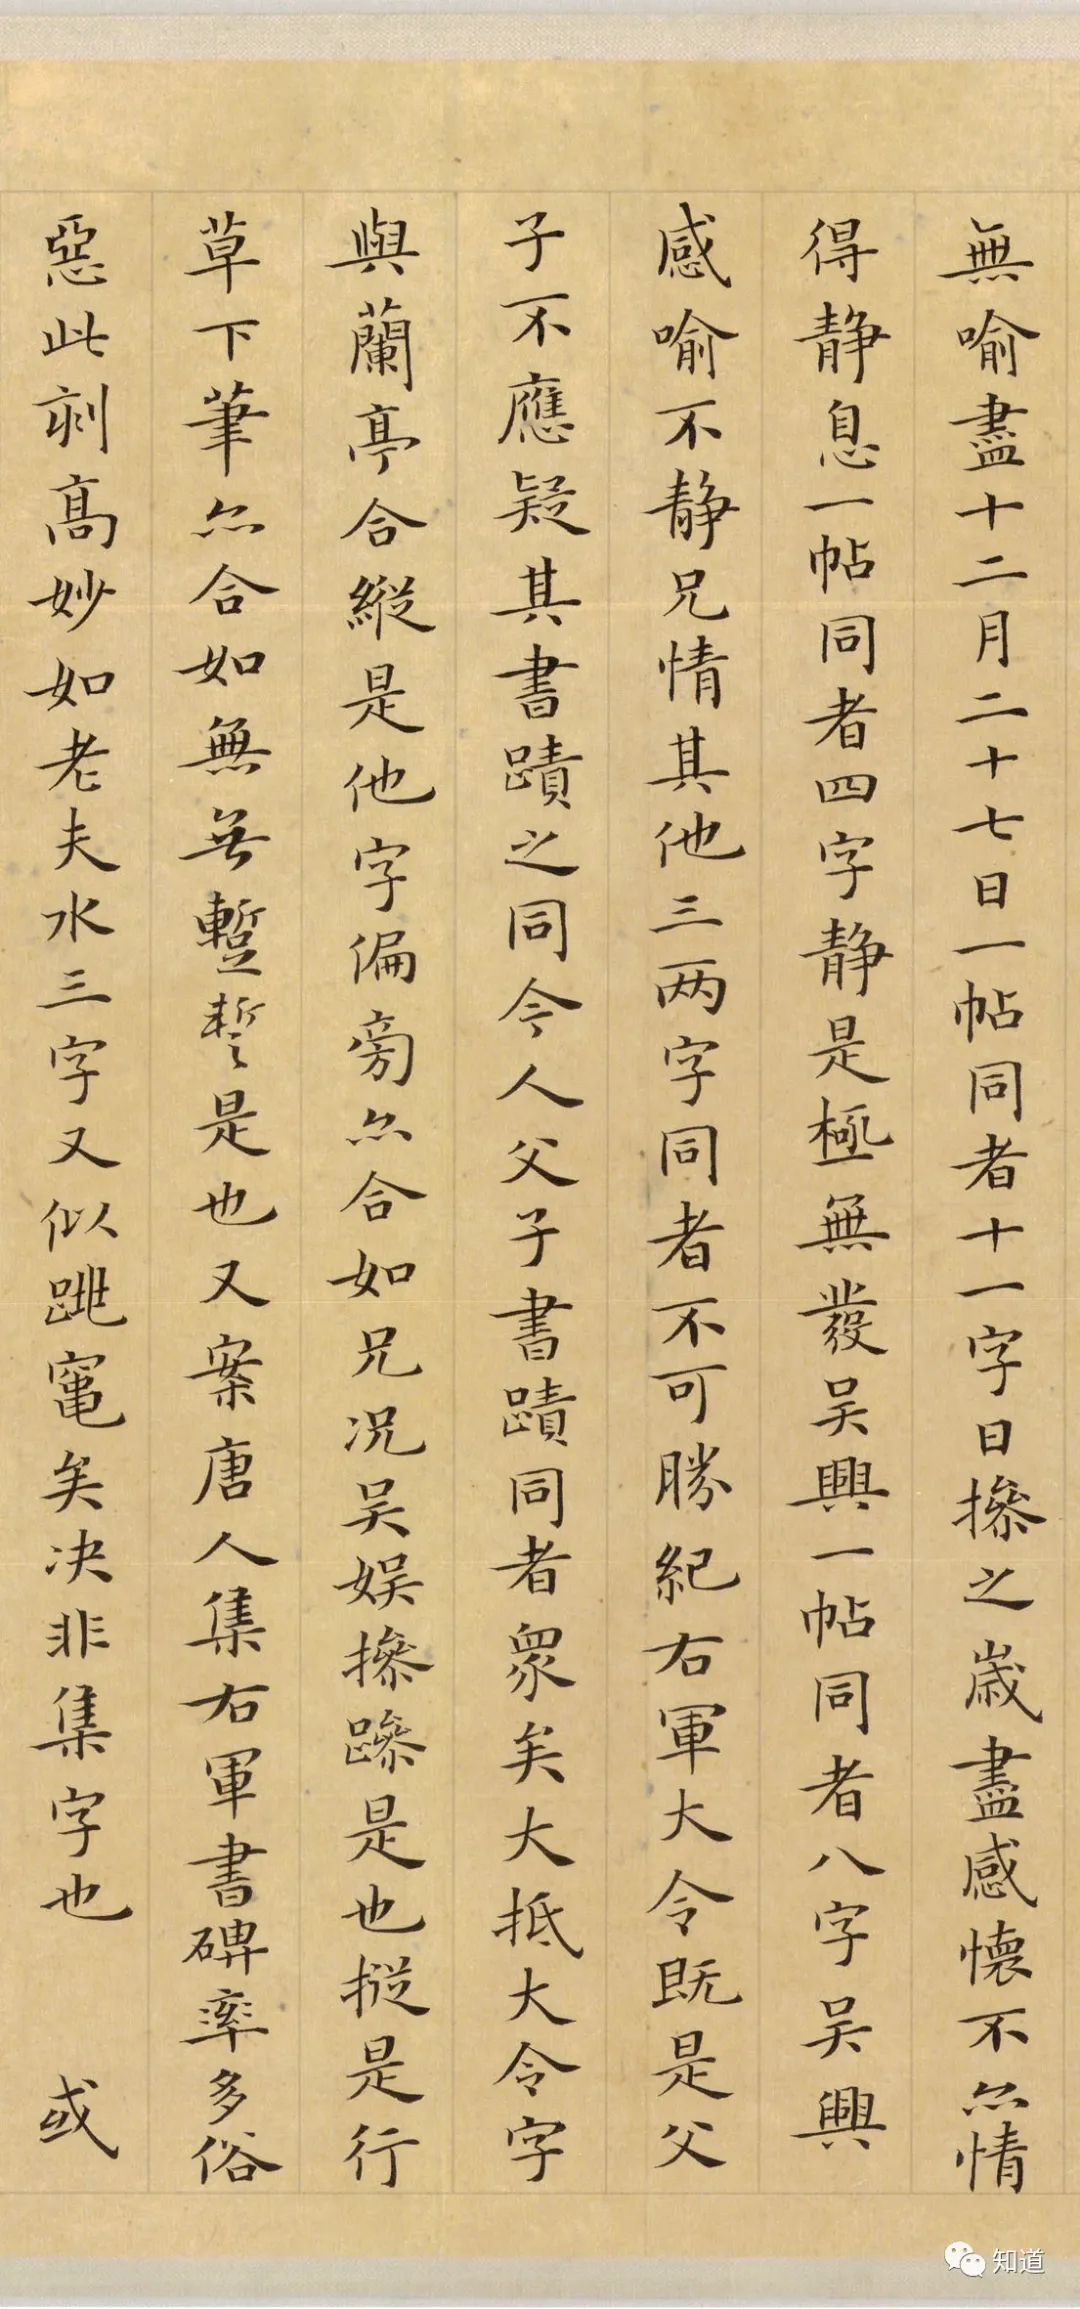 無喻盡十二月二十七日一帖同者十一字日摻之歲盡感懷不亦情
得静息一帖同者四字静是極無發吴興一帖同者八字吴興
感喻不静兄情其他三两字同者不可勝紀右軍大令既是父
子不應疑其書蹟之同今人父子書蹟同者衆矣大抵大令字
與蘭亭合縱是他字偏旁亦合如兄况吴娱摻蹘是也摐是行
草下筆亦合如無無蹔是也又案唐人集右軍書碑率多俗
惡此刻高妙如老夫水三字又似跳竃矣决非集字也 或
知道